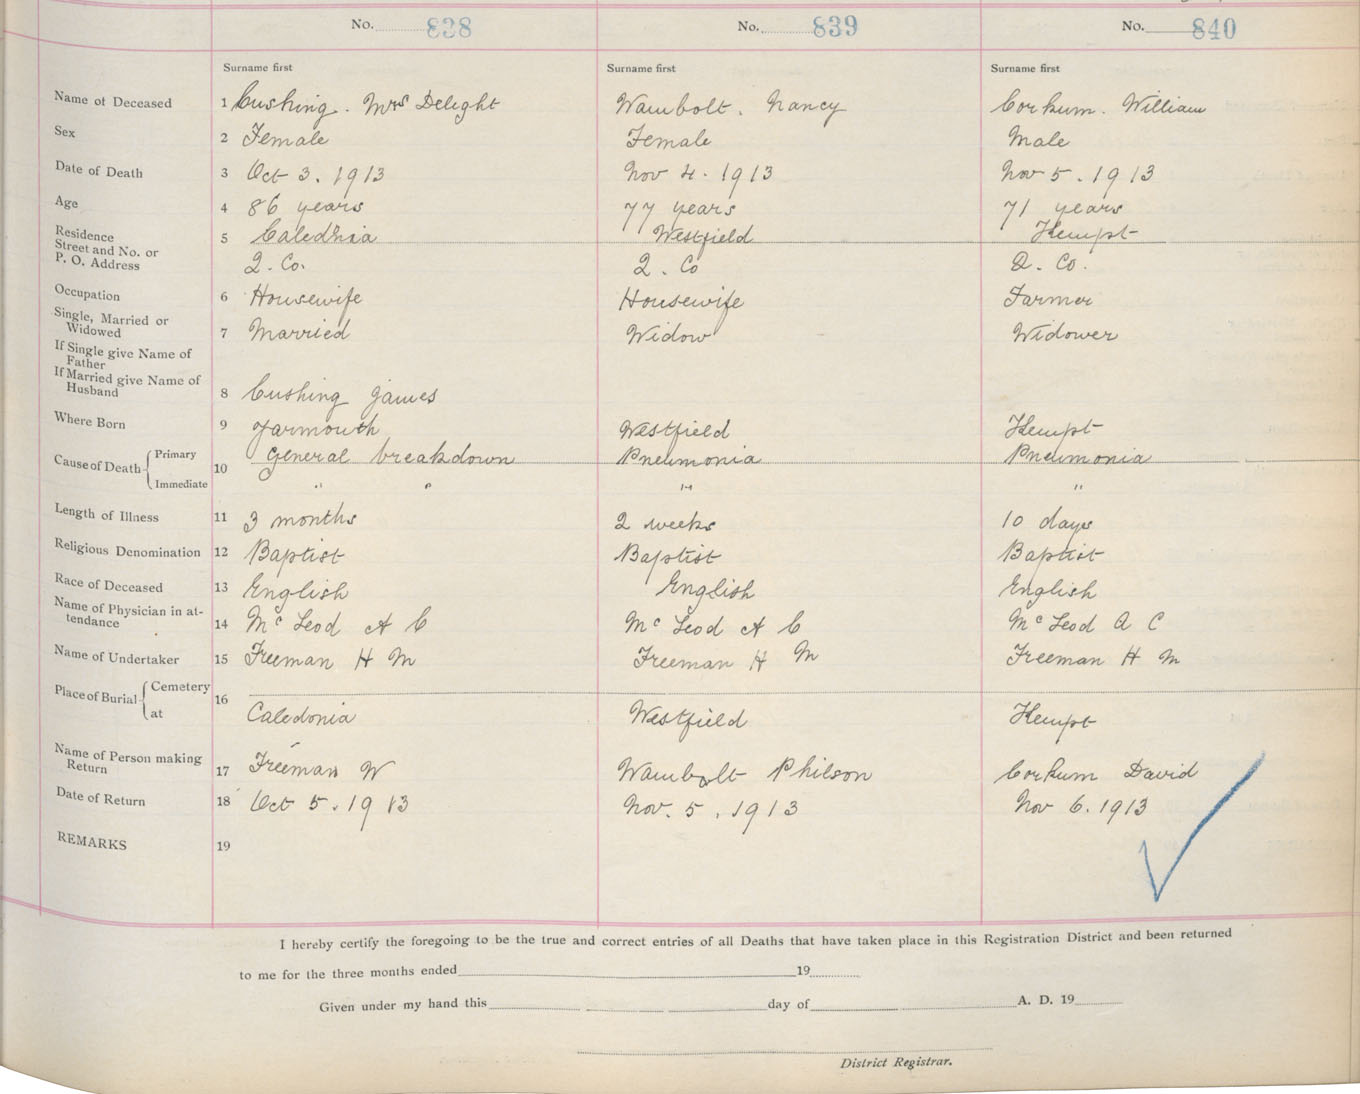 No. 838 No. 839 No. 840
Surname first Surname first Surname first
Name of Deceased 1 Cushing. Mrs Delight Wambolt. Nancy Corkum. William
Sex 2 Female Female Male
Date of Death 3 Oct 3. 1913 Nov 4. 1913 Nov 5. 1913
Age 4 86 years 77 years 71 years
Residence
Street and No. or 5 Caledonia Westfield Hempt
P. O. Address Q. Co. Q. Co Q. Co.
Occupation 6 Housewife Housewife Farmer
Single, Married or
Widowed 7 Married Widow Widower
If Single give Name of
Father
If Married give Name of
Husband 8 Cushing James
Where Born 9 Yarmouth Westfield Hempt
Cause of Death { Primary 10 General breakdown Pneumonia Pneumonia
Immediate " " " "
Length of Illness 11 3 months 2 weeks 10 days
Religious Denomination 12 Baptist Baptist Baptist
Race of Deceased 13 English English English
Name of Physician in at-
tendance 14 Mc Leod A C Mc Leod A C Mc Leod A C
Name of Undertaker 15 Freeman H M Freeman H M Freeman H M
Place of Burial { Cemetery 16
at Caledonia Westfield Hempt
Name of Person making
Return 17 Freeman W Wambolt Philson Corkum David
Date of Return 18 Oct 5. 1913 Nov. 5. 1913 Nov 6. 1913
REMARKS 19
I hereby certify the foregoing to be the true and correct entries of all Deaths that have taken place in this Registration District and been returned
to me for the three months ended 19
Given under my hand this day of A. D. 19
District Registrar.